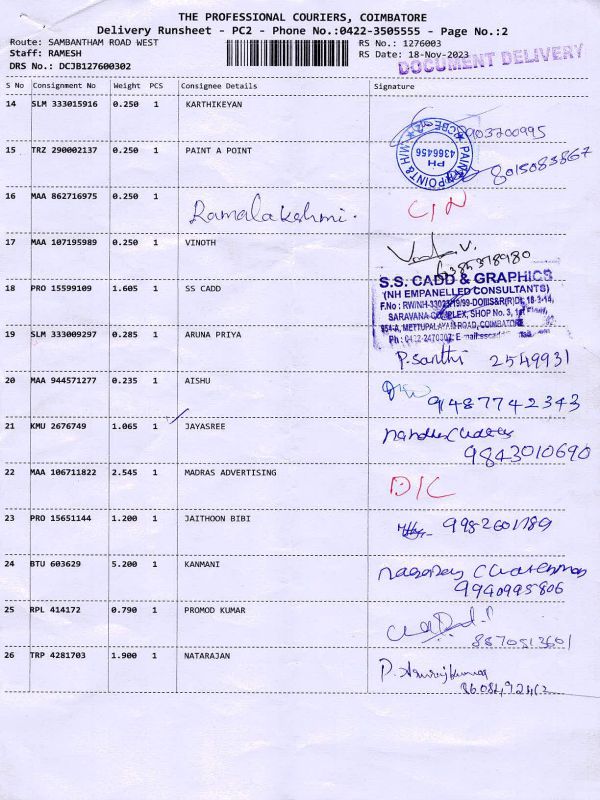 THE PROFESSIONAL COURIERS, COIMBATORE
Delivery Runsheet - PC2 - Phone No.:0422-3505555 - Page No.:2
Route: SAMBANTHAM ROAD WEST RS No.: 1276003
Staff: RAMESH RS Date: 18-Nov-2023
DRS No.: DCJB127600302 DOCUMENT DELIVERY
S No Consignment No Weight PCS Consignee Details Signature
14 SLM 333015916 0.250 1 KARTHIKEYAN
15 TRZ 290002137 0.250 1 PAINT A POINT 8015083867
PH 4366456
16 MAA 862716975 0.250 1 Ramalakshmi.
17 MAA 107195989 0.250 1 VINOTH
6385378980
18 PRO 15599109 1.605 1 SS CADD
S.S. CADD & GRAPHICS
(NH EMPANELLED CONSULTANTS)
SARAVANA COMPLEX, SHOP No. 3, 1st Floor,
METTUPALAYAM ROAD, COIMBATORE
19 SLM 333009297 0.285 1 ARUNA PRIYA P.santhi 2549931
20 MAA 944571277 0.235 1 AISHU 9487742343
21 KMU 2676749 1.065 1 JAYASREE
9843010690
22 MAA 106711822 2.545 1 MADRAS ADVERTISING D/C
23 PRO 15651144 1.200 1 JAITHOON BIBI
24 BTU 603629 5.200 1 KANMANI
9940995806
25 RPL 414172 0.790 1 PROMOD KUMAR
8870513601
26 TRP 4281703 1.900 1 NATARAJAN